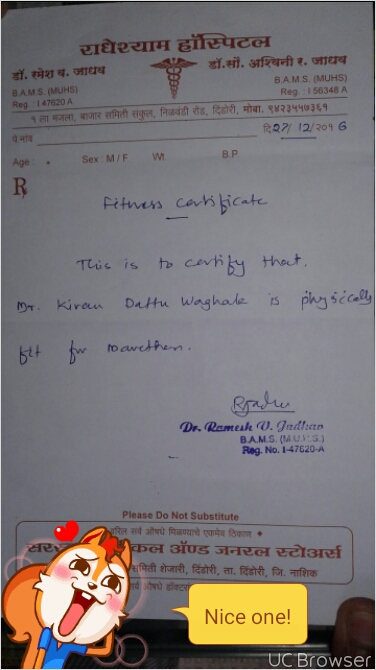 राधेश्याम हॉस्पिटल
डॉ. रमेश व. जाधव
B.A.M.S. (MUHS)
Reg. : I 47620 A
डॉ.सौ. अश्विनी र. जाधव
B.A.M.S. (MUHS)
Reg. : I 56348 A
१ ला मजला, बाजार समिती संकुल, निळवंडी रोड, दिंडोरी, मोबा. ९४२३५५७३६१
चे नांव
दि 27/12/२०१6
Age : Sex : M / F Wt. B.P.
R
Fitness Certificate
This is to certify that,
Mr. Kiran Dattu Waghale is physically
fit for Marethon.
Dr. Ramesh V. Jadhav
B.A.M.S. (M.U.H.S.)
Reg. No. I-47620-A
Please Do Not Substitute
सर्व औषधे मिळण्याचे एकमेव ठिकाण
कल ॲण्ड जनरल स्टोअर्स
समिती शेजारी, दिंडोरी, ता. दिंडोरी, जि. नाशिक
Nice one!
UC Browser